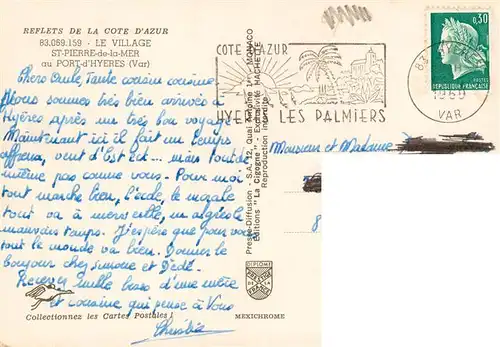 REFLETS DE LA COTE D'AZUR
83.069.159 - LE VILLAGE
ST-PIERRE-de-la-MER
au PORT-d'HYERES (Var)
Chers Oncle, Tante cousin cousine
Nous sommes très bien arrivés à
Hyères après un très bon voyage
Maintenant ici il fait un temps
affreux, vent d'Est ect... mais tout de
même pas comme vous. Pour moi
tout marche bien, l'école, le morale
tout va à merveille, malgré le
mauvais temps. J'espère que pour vous
tout le monde va bien. Donner le
bonjour chez Simone et Dédé.
Recevez mille bises d'une nièce
et cousine qui pense à Vous
Collectionnez les Cartes Postales !
MEXICHROME
Presse-Diffusion - S.A. 12, Quai Antoine 1er MONACO
Editions "La Cigogne" - Exclusivité HACHETTE
Reproduction interdite
DIPLOME
COTE D'AZUR
HYERES LES PALMIERS
83
1969
VAR
0,30
REPUBLIQUE FRANÇAISE
POSTES
Monsieur et Madame
8